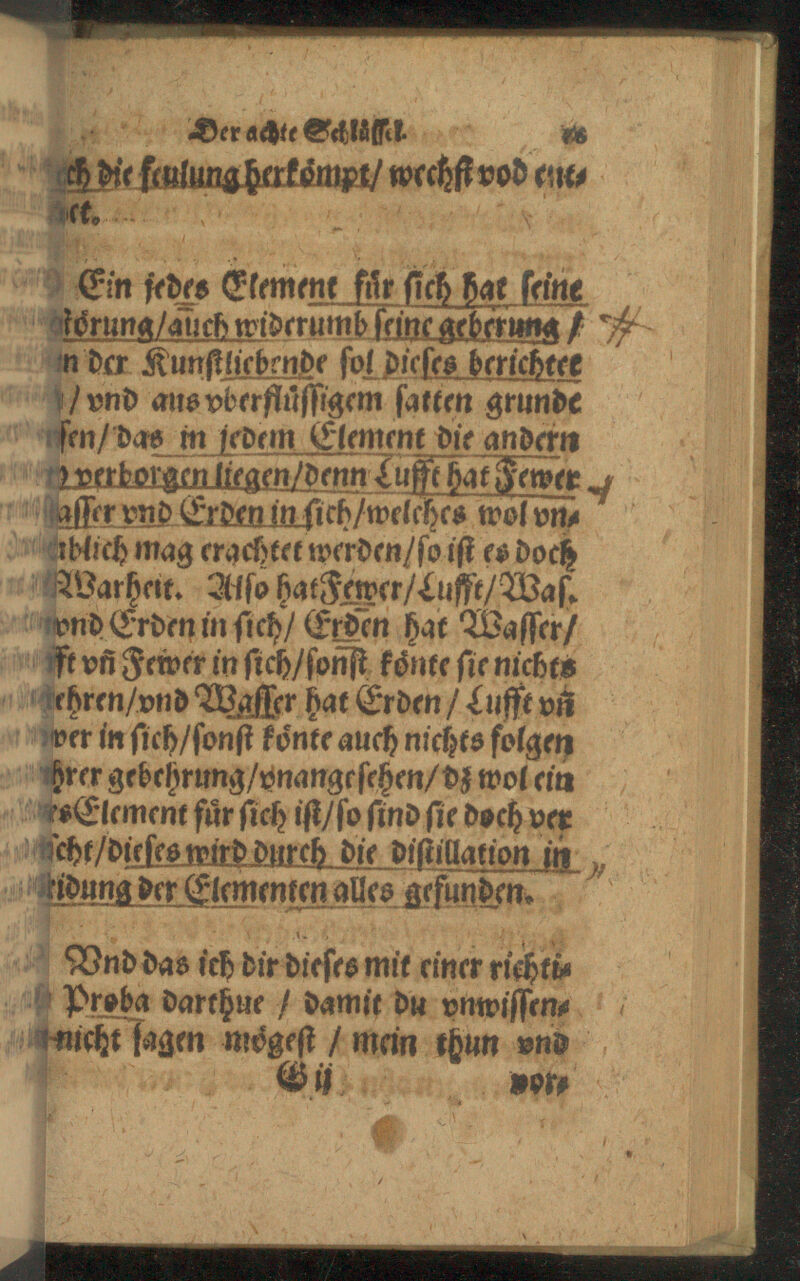 Der achte Schlüssel.
die feulung herkömpt/ wechst vod ent⸗
Ein jedes Element für sich hat seine
auch widerumb seine geberung /
der Kunstliebende sol dieses berichtet
/ vnd aus vberflüssigem satten grunde
das in jedem Element die andern
verborgen liegen/denn Lufft hat Fewer
vnd Erden in sich/welches wol vn⸗
mag erachtet werden/so ist es doch
Warheit. Also hat Fewer/Lufft/Was.
vnd Erden in sich/ Erden hat Wasser/
vñ Fewer in sich/sonst könte sie nichts
vnd Wasser hat Erden / Lufft vñ
in sich/sonst könte auch nichts folgen
gebehrung/vnangesehen/dz wol ein
Element für sich ist/so sind sie doch ver
dieses wird durch die distillation in
der Elementen alles gefunden.
Vnd das ich dir dieses mit einer richti⸗
Proba darthue / damit du vnwissen⸗
nicht sagen mögest / mein thun vnd
G ij vor⸗